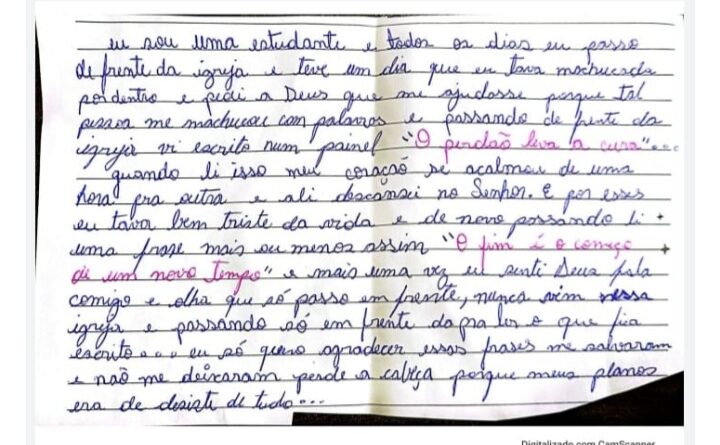 eu sou uma estudante e todos os dias eu passo
de frente da igreja e teve um dia que eu tava machucada
por dentro e pedi a Deus que me ajudasse porque tal
pessoa me machucou com palavras e passando de frente da
igreja vi escrito num painel "O perdão leva a cura"...
quando li isso meu coração se acalmou de uma
hora pra outra e ali descansei no Senhor. E por esses
eu tava bem triste da vida e de novo passando li
uma frase mais ou menos assim "O fim é o começo
de um novo tempo" e mais uma vez eu senti Deus fala
comigo e olha que só passo em frente, nunca vim nessa
igreja e passando só em frente da pra ler o que fica
escrito... eu só quero agradecer essas frases me salvaram
e não me deixaram perde a cabeça porque meus planos
era de desisti de tudo...
Digitalizado com CamScanner